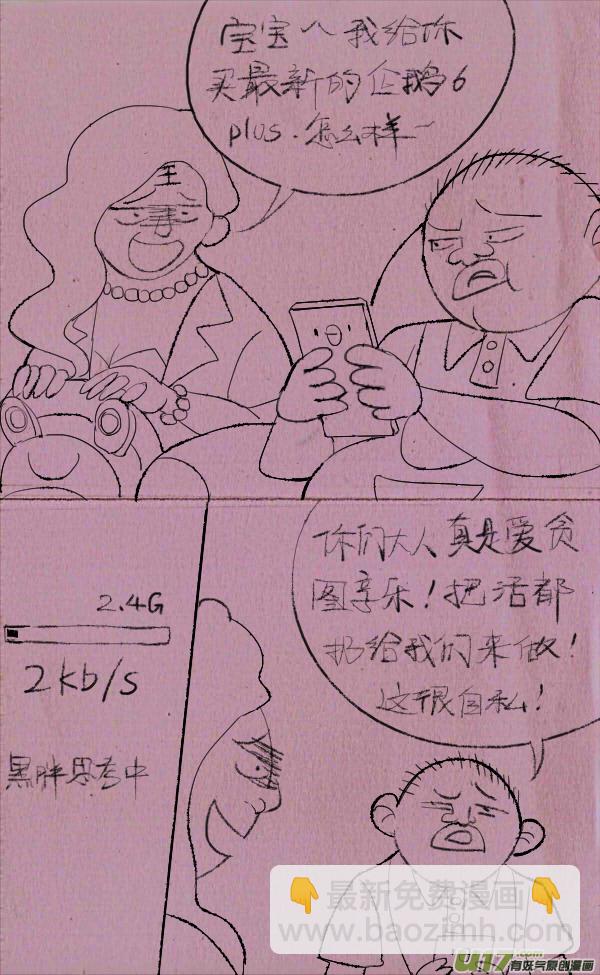 宝宝～我给你
买最新的企鹅6
plus.怎么样~
王
你们大人真是爱贪
图享乐！把活都
扔给我们来做！
这很自私！
2.4G
2kb/s
黑胖思考中
最新免费漫画
www.baozimh.com
U17.com
有妖气原创漫画